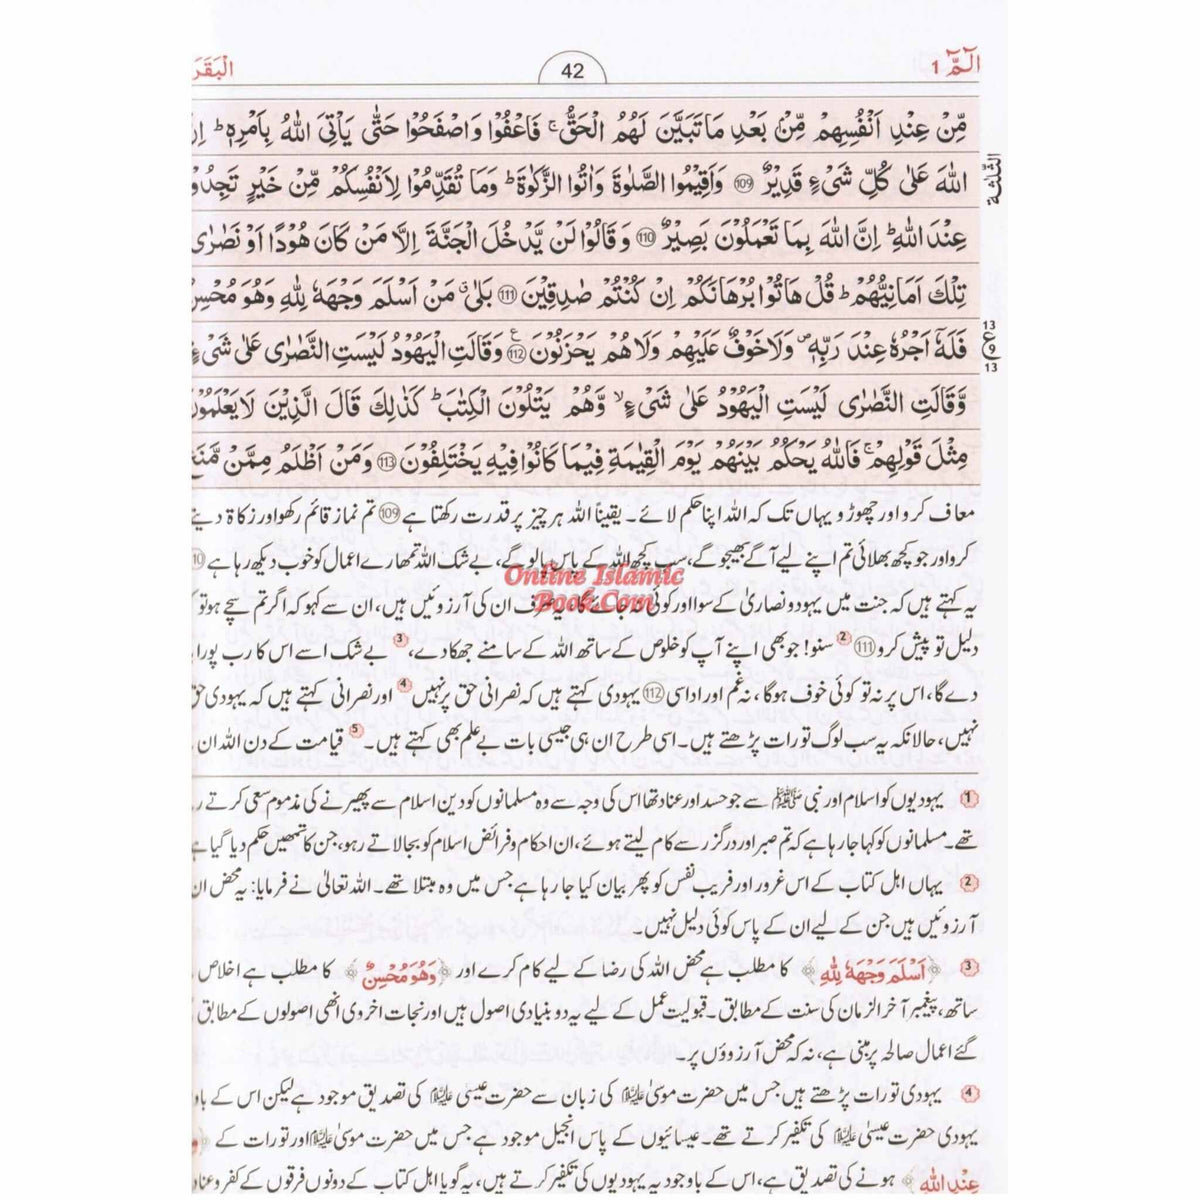 الٓمّٓ 1
42
الْبَقَرَ
مِّنْ عِنْدِ اَنْفُسِهِمْ مِّنْۢ بَعْدِ مَا تَبَيَّنَ لَهُمُ الْحَقُّ ۚ فَاعْفُوْا وَاصْفَحُوْا حَتّٰى يَاْتِيَ اللّٰهُ بِاَمْرِهٖ ؕ
اللّٰهَ عَلٰى كُلِّ شَيْءٍ قَدِيْرٌ 109 وَاَقِيْمُوا الصَّلٰوةَ وَاٰتُوا الزَّكٰوةَ ؕ وَمَا تُقَدِّمُوْا لِاَنْفُسِكُمْ مِّنْ خَيْرٍ تَجِدُو
الثلثة
عِنْدَ اللّٰهِ ؕ اِنَّ اللّٰهَ بِمَا تَعْمَلُوْنَ بَصِيْرٌ 110 وَقَالُوْا لَنْ يَّدْخُلَ الْجَنَّةَ اِلَّا مَنْ كَانَ هُوْدًا اَوْ نَصٰرٰى
تِلْكَ اَمَانِيُّهُمْ ؕ قُلْ هَاتُوْا بُرْهَانَكُمْ اِنْ كُنْتُمْ صٰدِقِيْنَ 111 بَلٰى ۗ مَنْ اَسْلَمَ وَجْهَهٗ لِلّٰهِ وَهُوَ مُحْسِنٌ
فَلَهٗٓ اَجْرُهٗ عِنْدَ رَبِّهٖ ۪ وَلَا خَوْفٌ عَلَيْهِمْ وَلَا هُمْ يَحْزَنُوْنَ 112 وَقَالَتِ الْيَهُوْدُ لَيْسَتِ النَّصٰرٰى عَلٰى شَيْءٍ
13
ع 9
13
وَّقَالَتِ النَّصٰرٰى لَيْسَتِ الْيَهُوْدُ عَلٰى شَيْءٍ ۙ وَّهُمْ يَتْلُوْنَ الْكِتٰبَ ؕ كَذٰلِكَ قَالَ الَّذِيْنَ لَا يَعْلَمُوْنَ
مِثْلَ قَوْلِهِمْ ۚ فَاللّٰهُ يَحْكُمُ بَيْنَهُمْ يَوْمَ الْقِيٰمَةِ فِيْمَا كَانُوْا فِيْهِ يَخْتَلِفُوْنَ 113 وَمَنْ اَظْلَمُ مِمَّنْ مَّنَعَ
معاف کرو اور چھوڑو یہاں تک کہ اللہ اپنا حکم لائے۔ یقیناً اللہ ہر چیز پر قدرت رکھتا ہے 109 تم نماز قائم رکھو اور زکاۃ دیتے
کرو اور جو کچھ بھلائی تم اپنے لیے آگے بھیجو گے، سب کچھ اللہ کے پاس پالو گے، بے شک اللہ تمھارے اعمال کو خوب دیکھ رہا ہے 10
Online Islamic
Book.Com
یہ کہتے ہیں کہ جنت میں یہود و نصاریٰ کے سوا اور کوئی نہ جائے گا، صرف ان کی آرزوئیں ہیں، ان سے کہو کہ اگر تم سچے ہو تو
دلیل تو پیش کرو 111 2 سنو! جو بھی اپنے آپ کو خلوص کے ساتھ اللہ کے سامنے جھکا دے، 3 بے شک اسے اس کا رب پورا
دے گا، اس پر نہ تو کوئی خوف ہوگا، نہ غم اور اداسی 112 یہودی کہتے ہیں کہ نصرانی حق پر نہیں 4 اور نصرانی کہتے ہیں کہ یہودی حق
نہیں، حالانکہ یہ سب لوگ تورات پڑھتے ہیں۔ اسی طرح ان ہی جیسی بات بے علم بھی کہتے ہیں۔ 5 قیامت کے دن اللہ ان
1 یہودیوں کو اسلام اور نبی ﷺ سے جو حسد اور عناد تھا اس کی وجہ سے وہ مسلمانوں کو دین اسلام سے پھیرنے کی مذموم سعی کرتے ر
تھے۔ مسلمانوں کو کہا جا رہا ہے کہ تم صبر اور درگزر سے کام لیتے ہوئے، ان احکام و فرائض اسلام کو بجالاتے رہو، جن کا تمھیں حکم دیا گیا ہے
2 یہاں اہل کتاب کے اس غرور اور فریب نفس کو پھر بیان کیا جا رہا ہے جس میں وہ مبتلا تھے۔ اللہ تعالیٰ نے فرمایا: یہ محض ان
آرزوئیں ہیں جن کے لیے ان کے پاس کوئی دلیل نہیں۔
3 ﴿اَسْلَمَ وَجْهَهٗ لِلّٰهِ﴾ کا مطلب ہے محض اللہ کی رضا کے لیے کام کرے اور ﴿وَهُوَ مُحْسِنٌ﴾ کا مطلب ہے اخلاص
ساتھ، پیغمبر آخر الزمان کی سنت کے مطابق۔ قبولیت عمل کے لیے یہ دو بنیادی اصول ہیں اور نجات اخروی انھی اصولوں کے مطابق
گئے اعمال صالحہ پر مبنی ہے، نہ کہ محض آرزوؤں پر۔
4 یہودی تورات پڑھتے ہیں جس میں حضرت موسیٰ علیہ السلام کی زبان سے حضرت عیسیٰ علیہ السلام کی تصدیق موجود ہے لیکن اس کے باو
یہودی حضرت عیسیٰ علیہ السلام کی تکفیر کرتے تھے۔ عیسائیوں کے پاس انجیل موجود ہے جس میں حضرت موسیٰ علیہ السلام اور تورات کے
عِنْدِ اللّٰهِ﴾ ہونے کی تصدیق ہے، اس کے باوجود یہ یہودیوں کی تکفیر کرتے ہیں، یہ گویا اہل کتاب کے دونوں فرقوں کے کفر و عناد